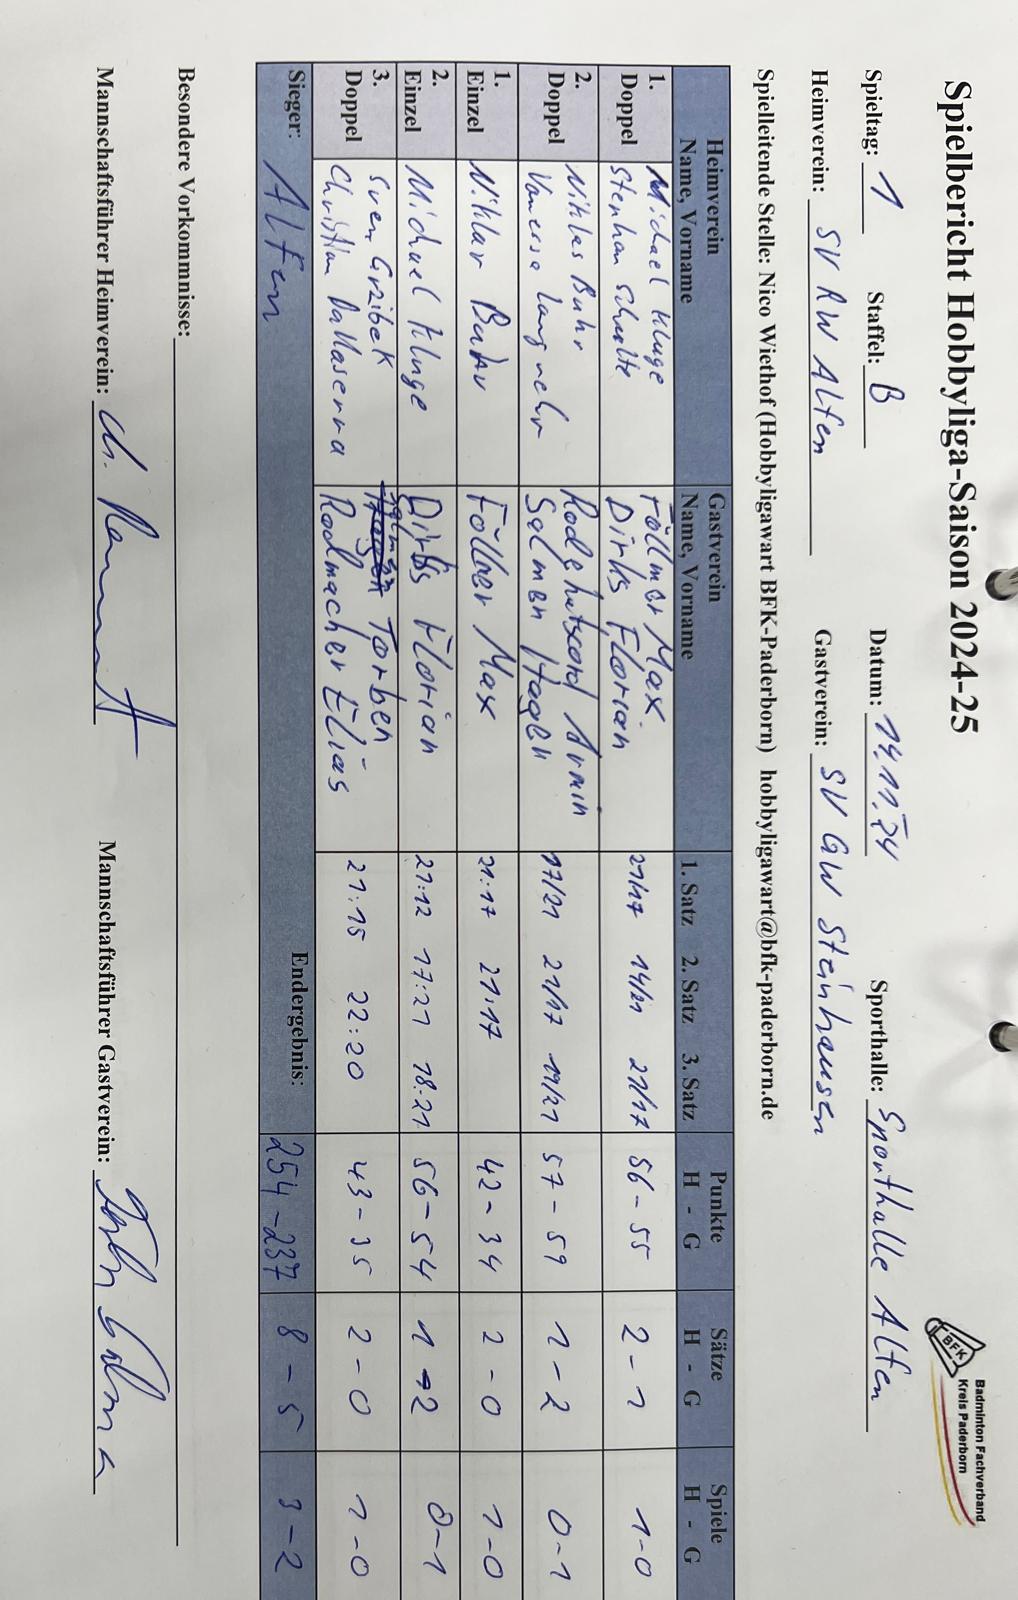 Spielbericht Hobbyliga-Saison 2024-25
Badminton Fachverband
Kreis Paderborn
BFK
Spieltag: 1 Staffel: B Datum: 14.11.24 Sporthalle: Sporthalle Alfen
Heimverein: SV RW Alfen Gastverein: SV GW Steinhausen
Spielleitende Stelle: Nico Wiethof (Hobbyligawart BFK-Paderborn) hobbyligawart@bfk-paderborn.de
Heimverein Gastverein Punkte Sätze Spiele
Name, Vorname Name, Vorname 1. Satz 2. Satz 3. Satz H - G H - G H - G
1. Michael Kluge Föllmer Max 21/17 14/21 21/17 56-55 2-1 1-0
Doppel Stephan Schulte Dirks Florian
2. Niklas Buhr Armin 17/21 21/17 19/21 57-59 1-2 0-1
Doppel Vanessa Langnehr Salmen Hagen
1. Niklas Buhr Max 21:17 21:17 42-34 2-0 1-0
Einzel
2. Michael Kluge Dirks Florian 21:12 17:21 18:21 56-54 1-2 0-1
Einzel
3. Sven Salmen Torben - 21:15 22:20 43-35 2-0 1-0
Doppel Christian Radmacher Elias
Sieger: Alfen Endergebnis: 254-237 8-5 3-2
Besondere Vorkommnisse:
Mannschaftsführer Heimverein: Mannschaftsführer Gastverein: